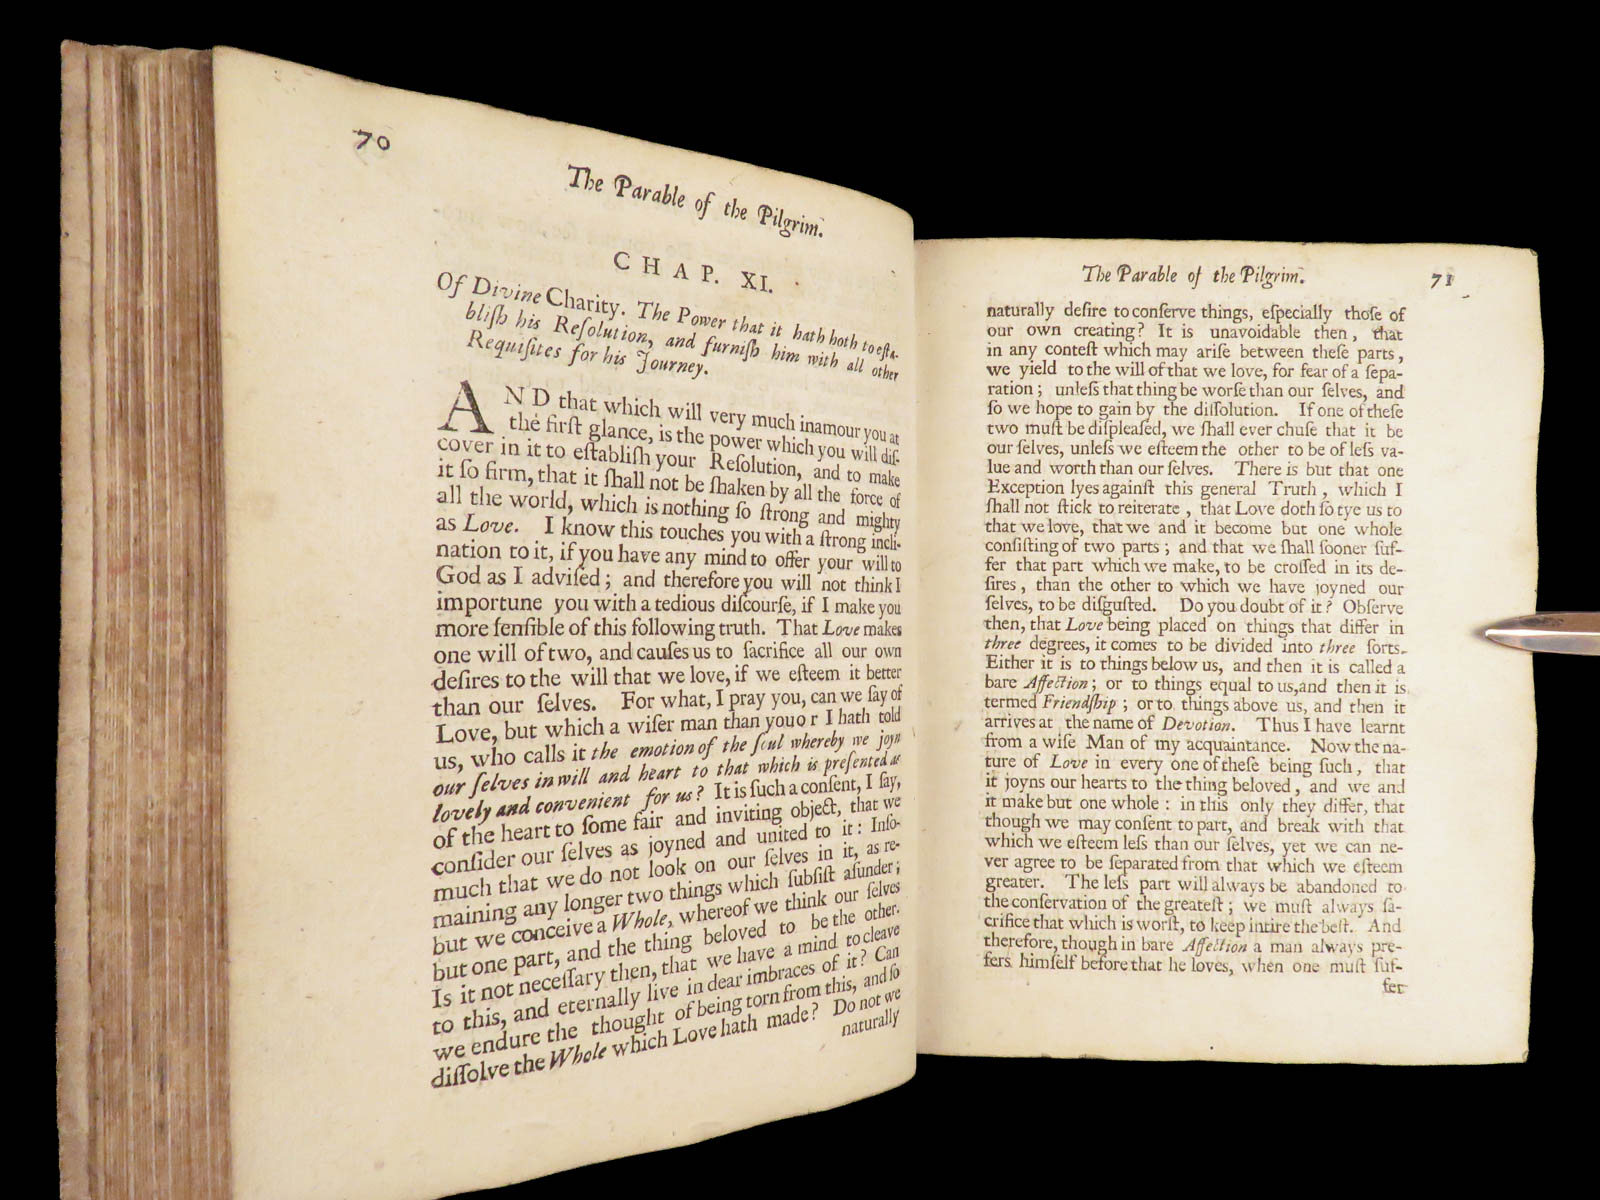 70
The Parable of the Pilgrim.
CHAP. XI.
Of Divine Charity. The Power that it hath both to eſta-
bliſh his Reſolution, and furniſh him with all other
Requiſites for his Journey.
AND that which will very much inamour you at
the firſt glance, is the power which you will diſ-
cover in it to eſtabliſh your Reſolution, and to make
it ſo firm, that it ſhall not be ſhaken by all the force of
all the world, which is nothing ſo ſtrong and mighty
as Love. I know this touches you with a ſtrong incli-
nation to it, if you have any mind to offer your will to
God as I adviſed; and therefore you will not think I
importune you with a tedious diſcourſe, if I make you
more ſenſible of this following truth. That Love makes
one will of two, and cauſes us to ſacrifice all our own
deſires to the will that we love, if we eſteem it better
than our ſelves. For what, I pray you, can we ſay of
Love, but which a wiſer man than you o r I hath told
us, who calls it the emotion of the ſoul whereby we joyn
our ſelves in will and heart to that which is preſented as
lovely and convenient for us? It is ſuch a conſent, I ſay,
of the heart to ſome fair and inviting object, that we
conſider our ſelves as joyned and united to it: Inſo-
much that we do not look on our ſelves in it, as re-
maining any longer two things which ſubſiſt aſunder;
but we conceive a Whole, whereof we think our ſelves
but one part, and the thing beloved to be the other.
Is it not neceſſary then, that we have a mind to cleave
to this, and eternally live in dear imbraces of it? Can
we endure the thought of being torn from this, and ſo
diſſolve the Whole which Love hath made? Do not we
naturally
The Parable of the Pilgrim. 71
naturally deſire to conſerve things, eſpecially thoſe of
our own creating? It is unavoidable then, that
in any conteſt which may ariſe between theſe parts,
we yield to the will of that we love, for fear of a ſepa-
ration; unleſs that thing be worſe than our ſelves, and
ſo we hope to gain by the diſſolution. If one of theſe
two muſt be diſpleaſed, we ſhall ever chuſe that it be
our ſelves, unleſs we eſteem the other to be of leſs va-
lue and worth than our ſelves. There is but that one
Exception lyes againſt this general Truth, which I
ſhall not ſtick to reiterate, that Love doth ſo tye us to
that we love, that we and it become but one whole
conſiſting of two parts; and that we ſhall ſooner ſuf-
fer that part which we make, to be croſſed in its de-
ſires, than the other to which we have joyned our
ſelves, to be diſguſted. Do you doubt of it? Obſerve
then, that Love being placed on things that differ in
three degrees, it comes to be divided into three ſorts.
Either it is to things below us, and then it is called a
bare Affection; or to things equal to us, and then it is
termed Friendſhip; or to things above us, and then it
arrives at the name of Devotion. Thus I have learnt
from a wiſe Man of my acquaintance. Now the na-
ture of Love in every one of theſe being ſuch, that
it joyns our hearts to the thing beloved, and we and
it make but one whole: in this only they differ, that
though we may conſent to part, and break with that
which we eſteem leſs than our ſelves, yet we can ne-
ver agree to be ſeparated from that which we eſteem
greater. The leſs part will always be abandoned to
the conſervation of the greateſt; we muſt always ſa-
crifice that which is worſt, to keep intire the beſt. And
therefore, though in bare Affection a man always pre-
fers himſelf before that he loves, when one muſt ſuf-
fer